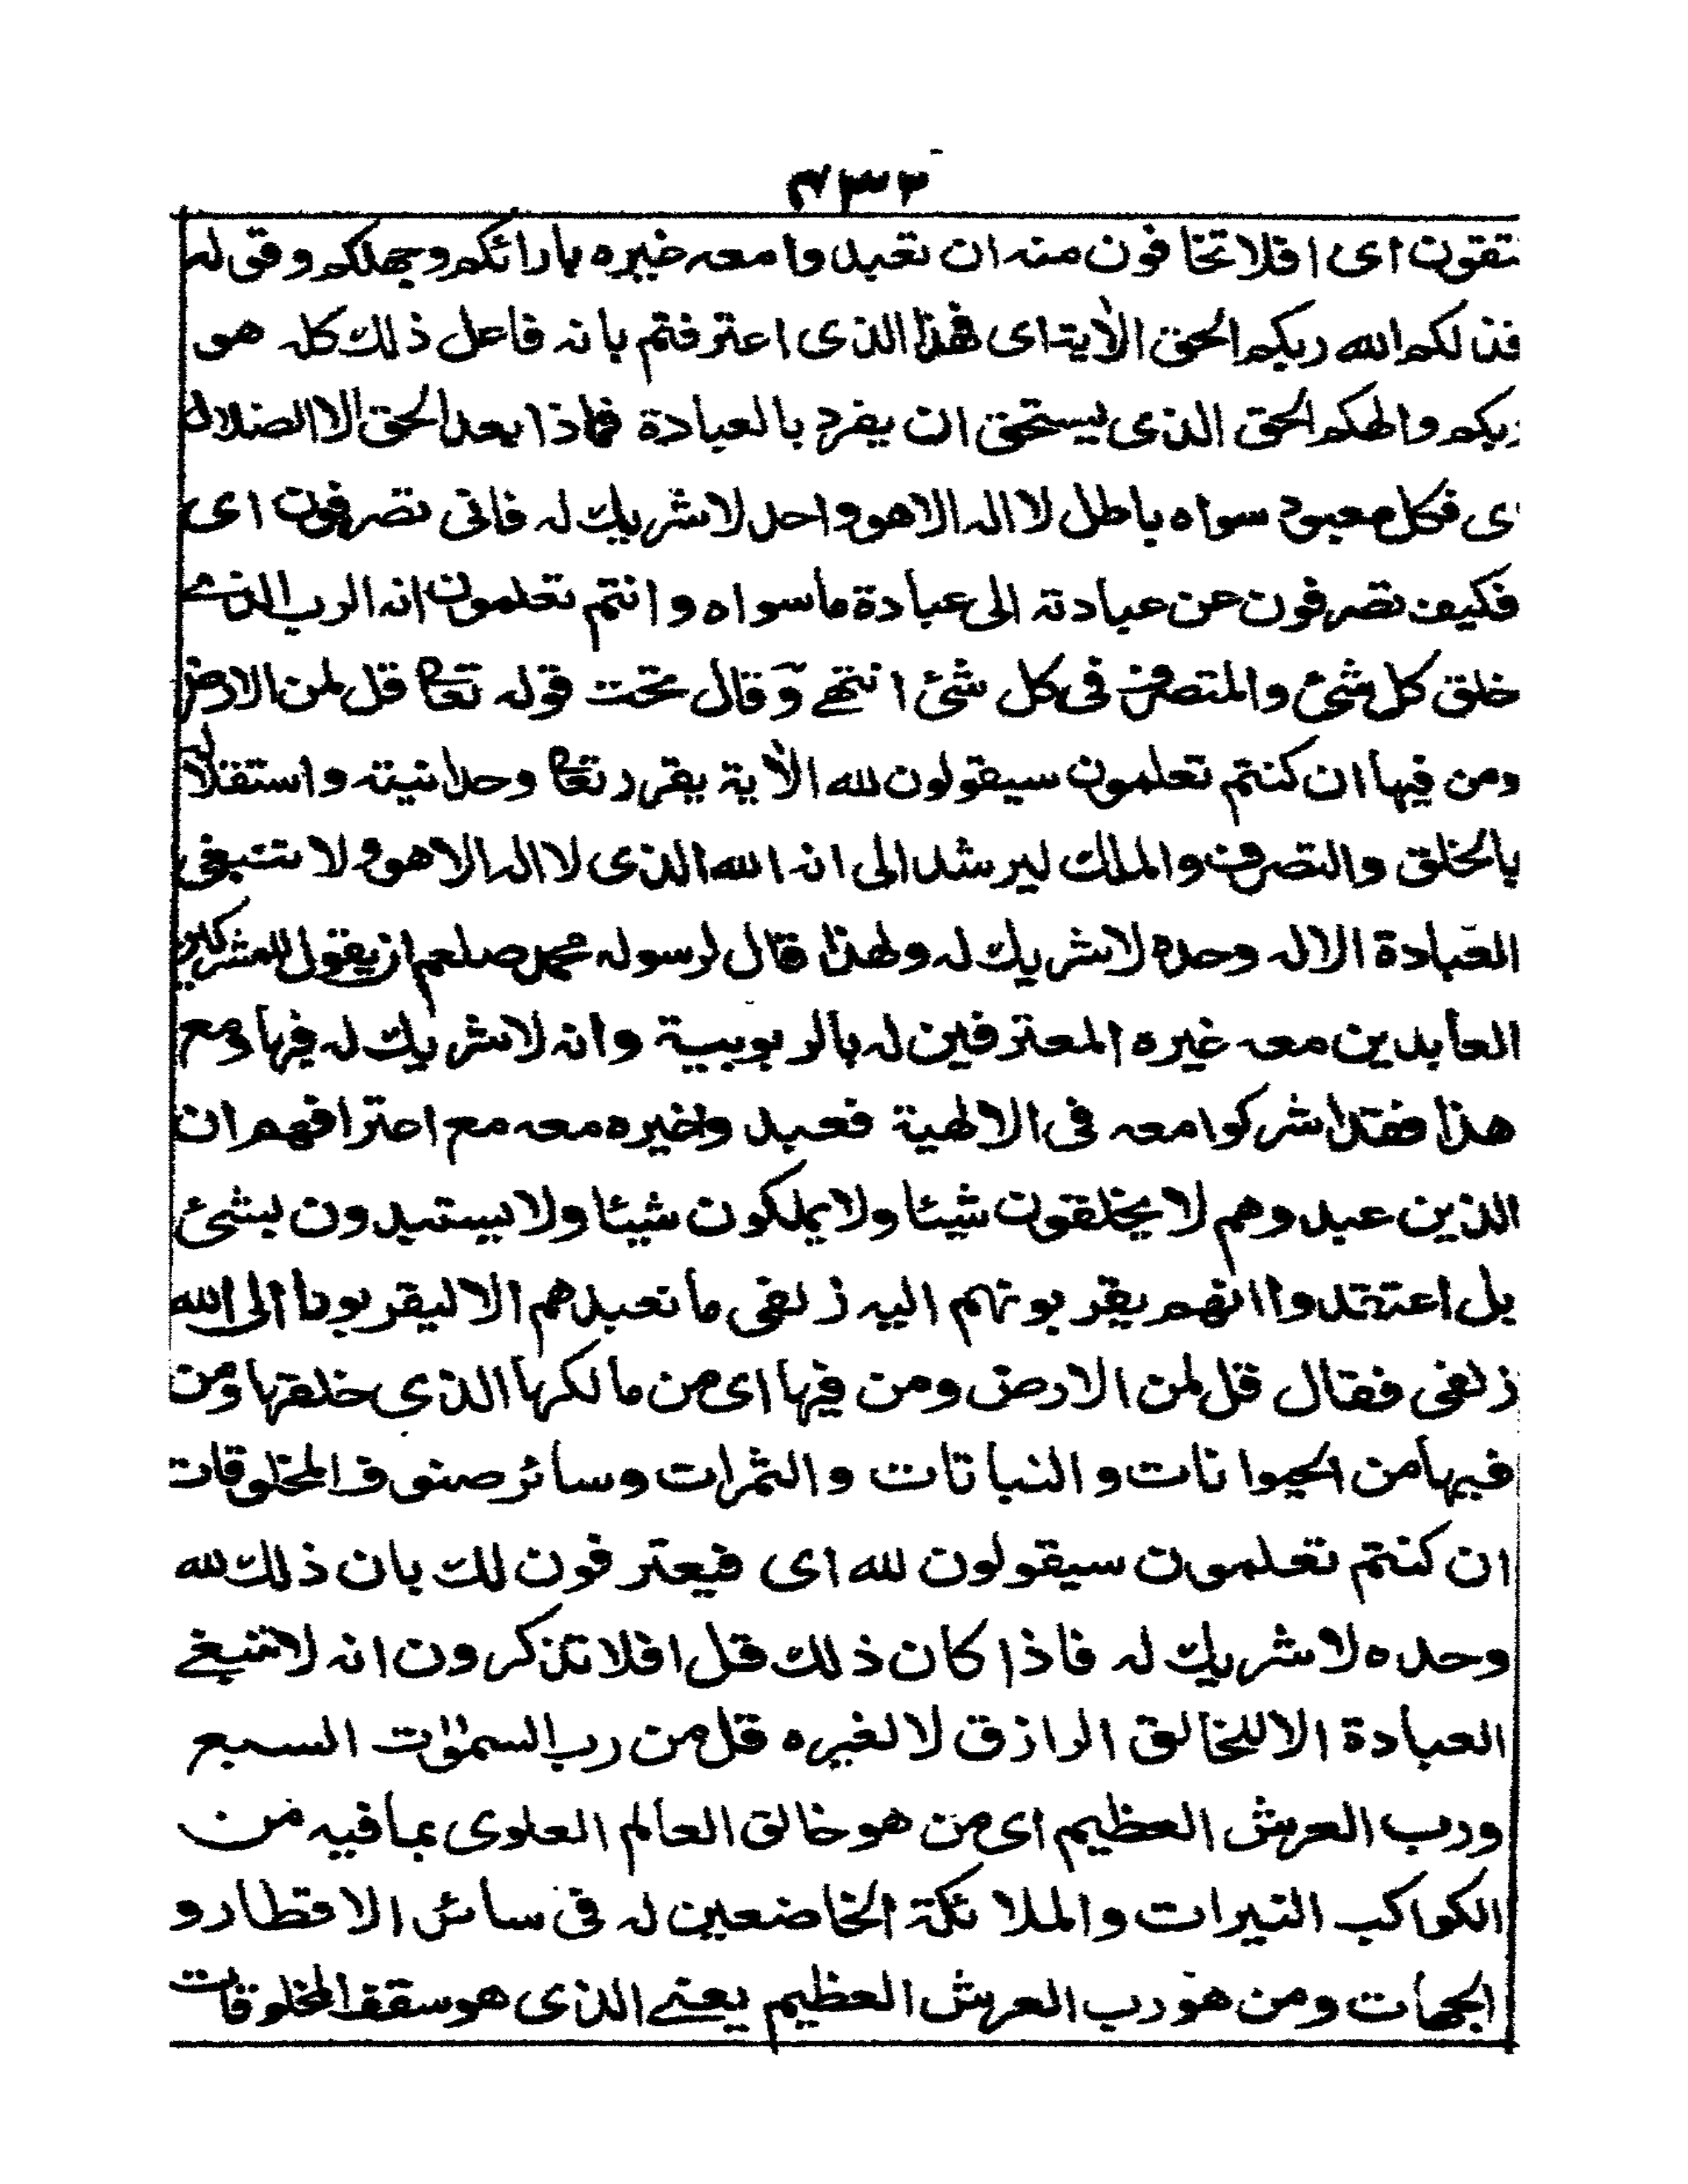 تتقون اى افلا تخافون منه ان تعبدوا معه غيره بارائكم وجهلكم وقوله
فذلكم الله ربكم الحق الاٰية اى فهذا الذى اعترفتم بانه فاعل ذلك كله هو
ربكم والهكم الحق الذى يستحق ان يفرد بالعبادة فماذا بعد الحق الا الضلال
اى فكل معبود سواه باطل لا اله الا هو واحد لا شريك له فانى تصرفون اى
فكيف تصرفون عن عبادته الى عبادة ما سواه وانتم تعلمون انه الرب الذے
خلق كل شئ والمتصرف فى كل شئ انتهے وقال تحت قوله تعا قل لمن الارض
ومن فيها ان كنتم تعلمون سيقولون لله الاٰية يقرر تعا وحدانيته واستقلاله
بالخلق والتصرف والملك ليرشد الى انه الله الذى لا اله الا هو ولا تنبغى
العبادة الا له وحده لا شريك له ولهذا قال لرسوله محمد صلعم ان يقول للمشركين
العابدين معه غيره المعترفين له بالربوبية وانه لا شريك له فيها ومع
هذا فقد اشركوا معه فى الالهية فعبدوا غيره معه مع اعترافهم ان
الذين عبدوهم لا يخلقون شيئا ولا يملكون شيئا ولا يستبدون بشئ
بل اعتقدوا انهم يقربونهم اليه زلفى ما نعبدهم الا ليقربونا الى الله
زلفى فقال قل لمن الارض ومن فيها اى من مالكها الذى خلقها ومن
فيها من الحيوانات والنباتات والثمرات وسائر صنوف المخلوقات
ان كنتم تعلمون سيقولون لله اى فيعترفون لك بان ذلك لله
وحده لا شريك له فاذا كان ذلك قل افلا تذكرون انه لا تنبغے
العبادة الا للخالق الرازق لا لغيره قل من رب السمٰوٰت السبع
ورب العرش العظيم اى من هو خالق العالم العلوى بما فيه من
الكواكب النيرات والملائكة الخاضعين له فى سائر الاقطار و
الجهات ومن هو رب العرش العظيم يعنے الذى هو سقف المخلوقات